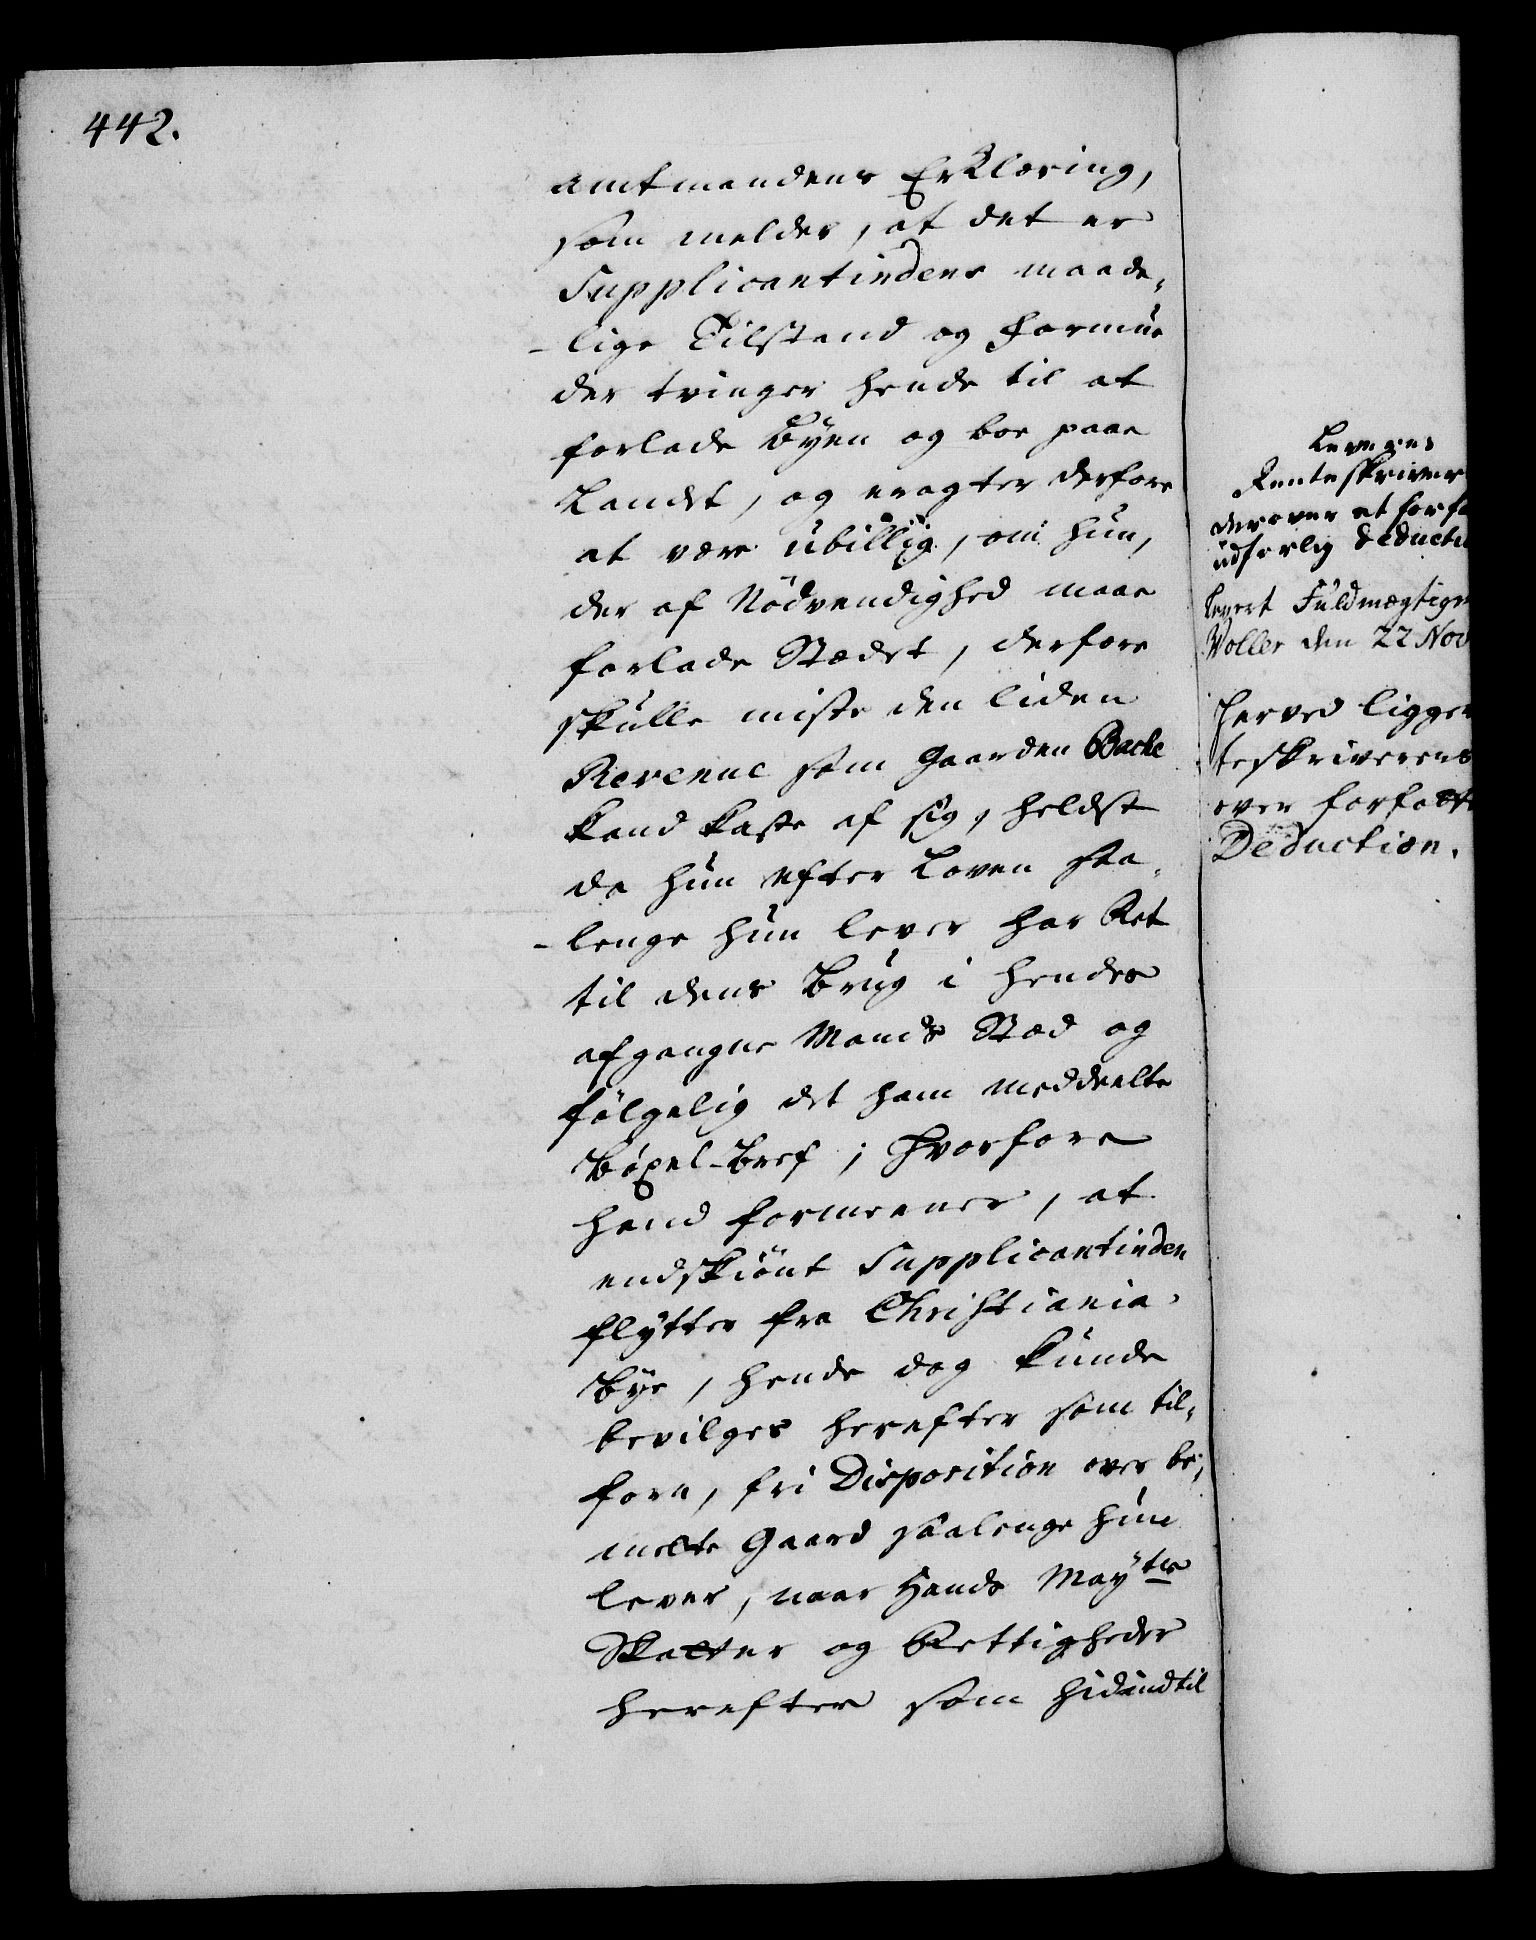 442.
Amtmandens Erklæring,
som melder, at det er
Supplicantindens maade-
-lige Tilstand og Formue
der tvinger hende til at
forlade Byen og boe paae
Landet, og eragter derfore
at være ubilligt, om hun,
der af Nödvendighed maae
forlade Stædet, derfore
skulle miste den liden
Revenue som Gaarden Bache
kand kaste af sig, heldst
da hun efter Loven saa-
-lenge hun lever har Ret
til dens Brug i hendes
afgangne Mands Stæd og
fölgelig det ham meddeelte
Böxel-Bref; hvorfore
hand formeener, at
endskiönt Supplicantinden
flytter fra Christiania
Bye, hende dog kunde
bevilges herefter som til-
forn, fri Disposition over be-
melte Gaard saalenge hun
lever, naar Hands Mayts
Skatter og Rettigheder
herefter som hidindtil
Leveres
Renteskriver
derover at forfa
udförlig Deducti
Levert Fuldmægtigen
Woller den 22 Nov
Herved ligger
teskriverens
over forfatte
Deduction.